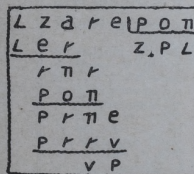 Lzare pon
Ler z.pL
rnr
pon
prne
prrv
vp